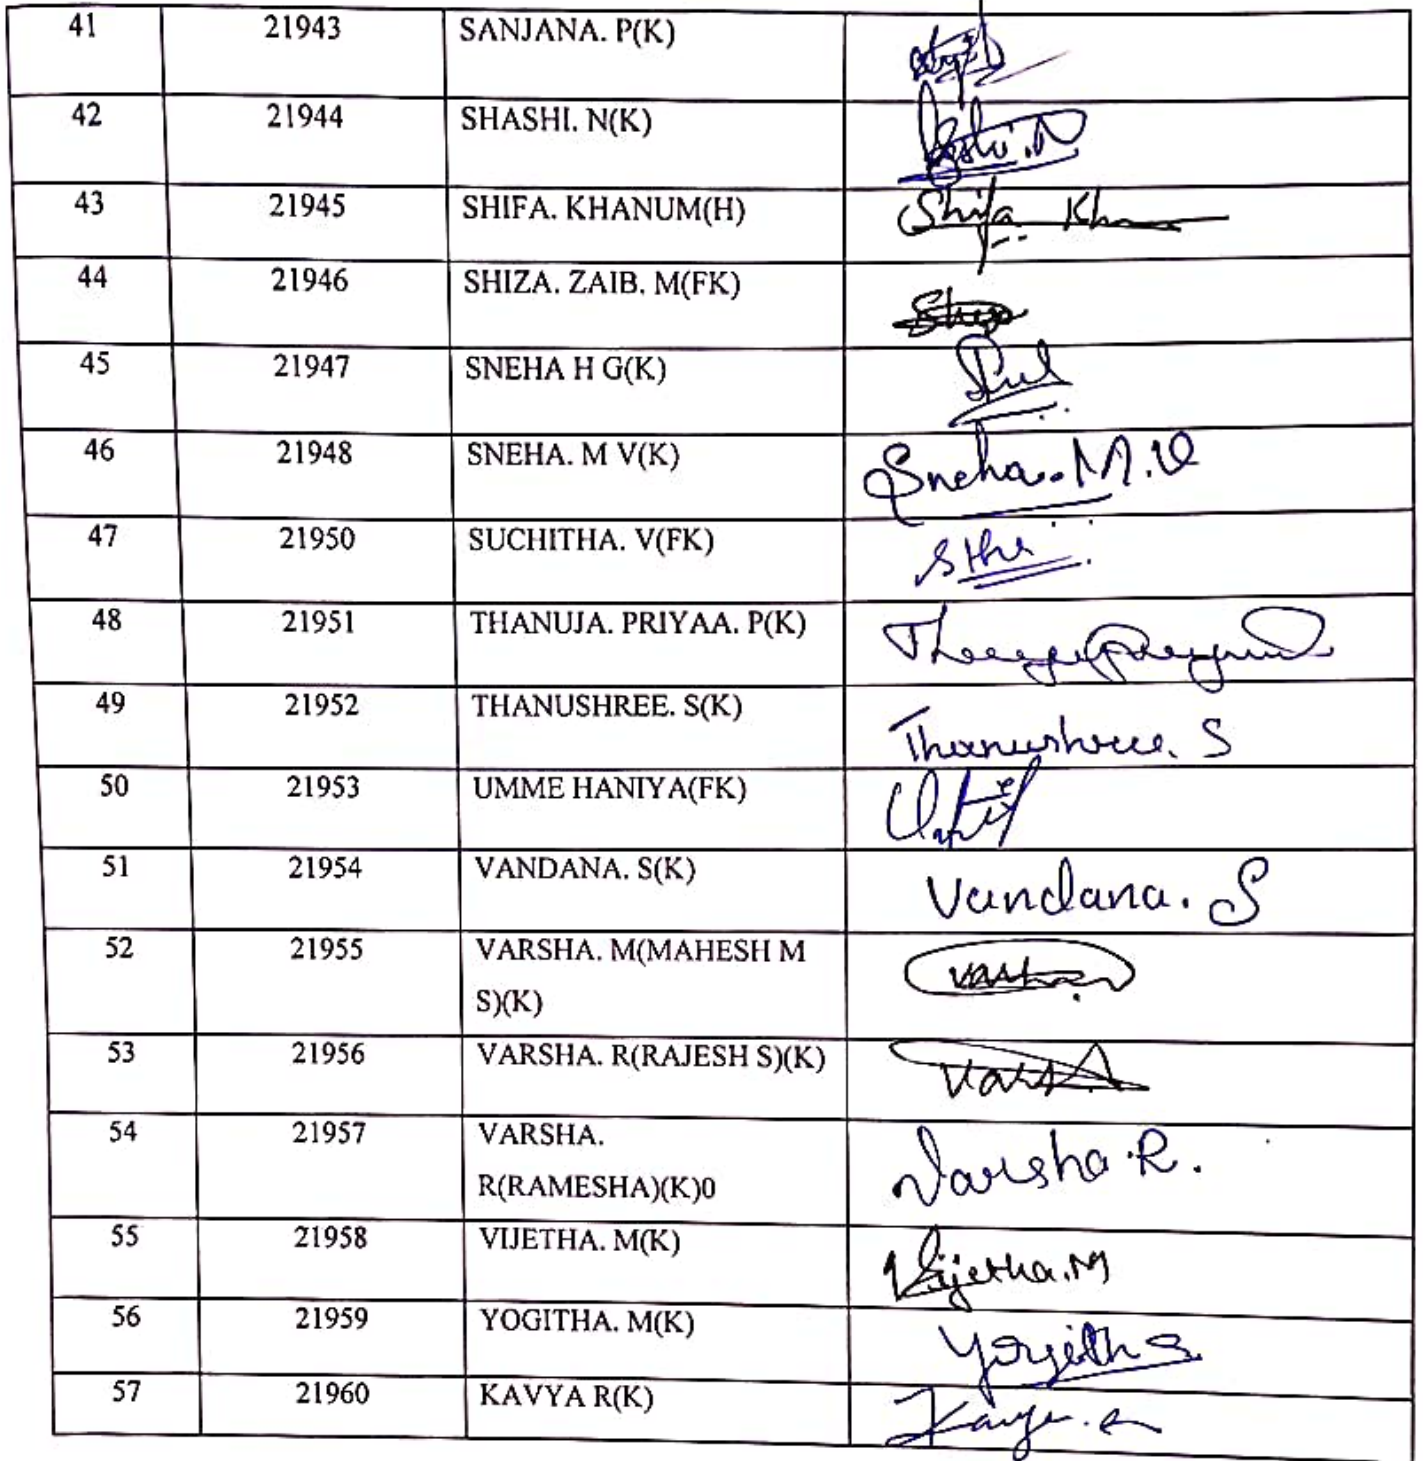 41 21943 SANJANA. P(K)
42 21944 SHASHI. N(K) Shashi.N
43 21945 SHIFA. KHANUM(H) Shifa Kh
44 21946 SHIZA. ZAIB. M(FK)
45 21947 SNEHA H G(K)
46 21948 SNEHA. M V(K) Sneha.M.V
47 21950 SUCHITHA. V(FK)
48 21951 THANUJA. PRIYAA. P(K)
49 21952 THANUSHREE. S(K) Thanushree. S
50 21953 UMME HANIYA(FK)
51 21954 VANDANA. S(K) Vandana. S
52 21955 VARSHA. M(MAHESH M
S)(K)
53 21956 VARSHA. R(RAJESH S)(K)
54 21957 VARSHA. Varsha.R.
R(RAMESHA)(K)0
55 21958 VIJETHA. M(K) Vijetha.M
56 21959 YOGITHA. M(K)
57 21960 KAVYA R(K)